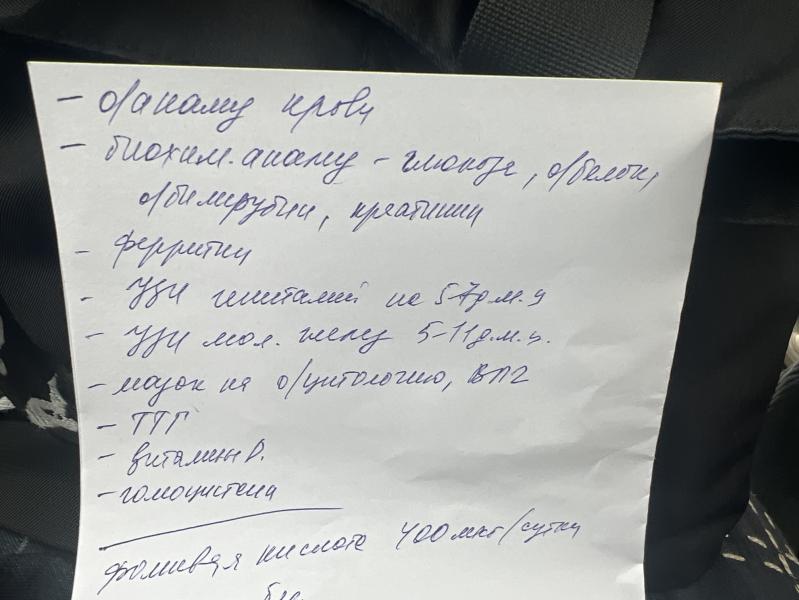 - о/анализ крови
- биохим. анализ - глюкоза, о/белок,
о/билирубин, креатинин
- ферритин
- УЗИ гениталий на 5-7 д.м.ц
- УЗИ мол. желез 5-11 д.м.ц.
- мазок на о/цитологию, ВПГ
- ТТГ
- витамин D.
- гомоцистеин
фолиевая кислота 400 мкг/сутки